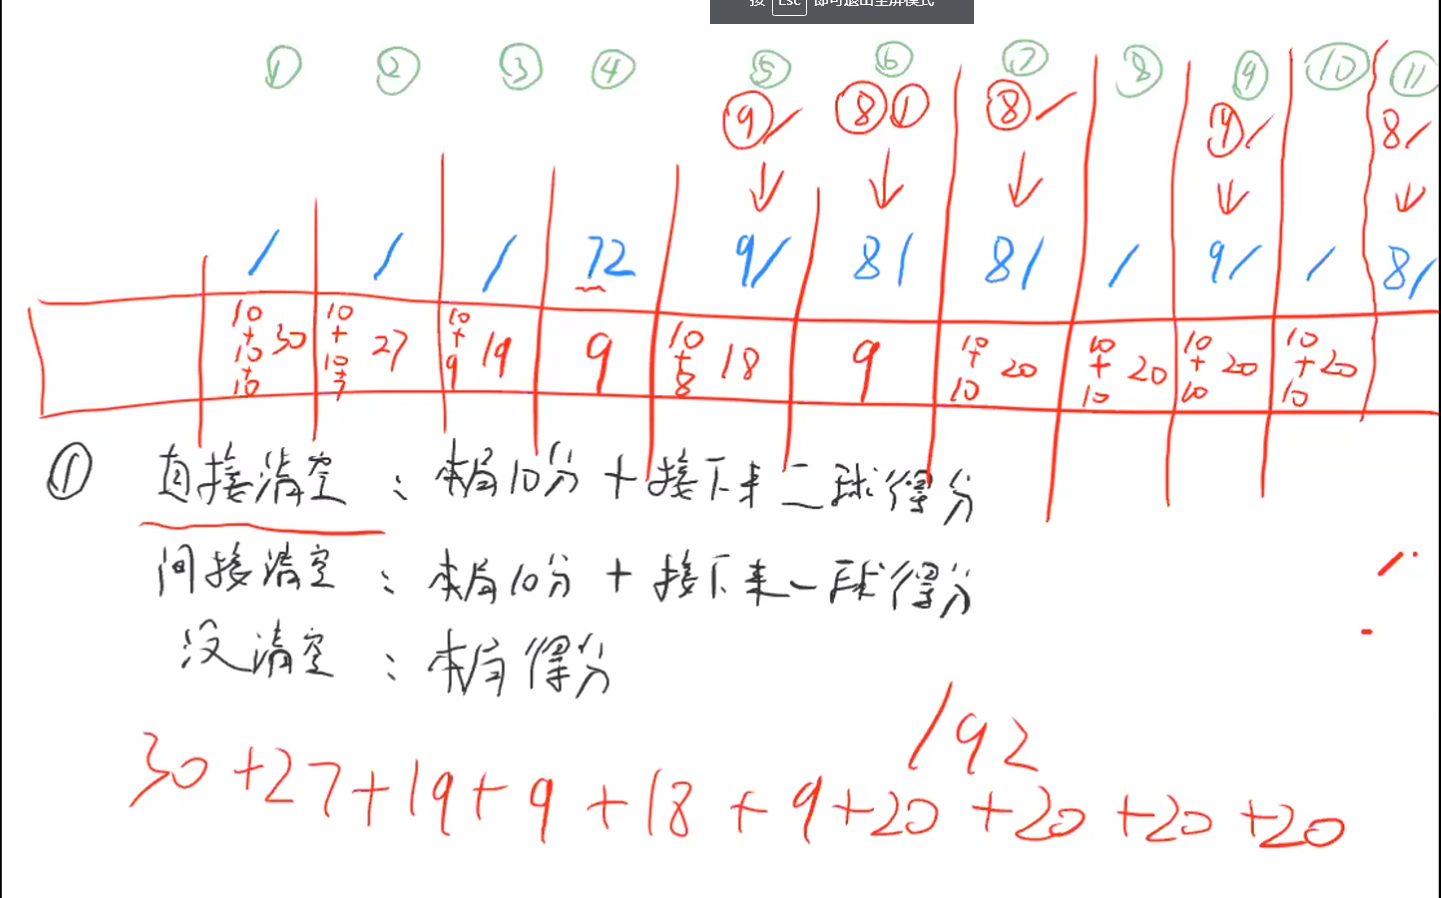 按 Esc 即可退出全屏模式
① ② ③ ④ ⑤ ⑥ ⑦ ⑧ ⑨ ⑩ ⑪
⑨/ ⑧① ⑧/ ⑨/ 8/
/ / / 72 9/ 81 8/ / 9/ / 8/
10+10+10 30 10+10+7 27 10+9 19 9 10+8 18 9 10+10 20 10+10 20 10+10 20 10+10 20
① 直接清空：本局10分+接下来二球得分
间接清空：本局10分+接下来一球得分
没清空：本局得分
192
30+27+19+9+18+9+20+20+20+20